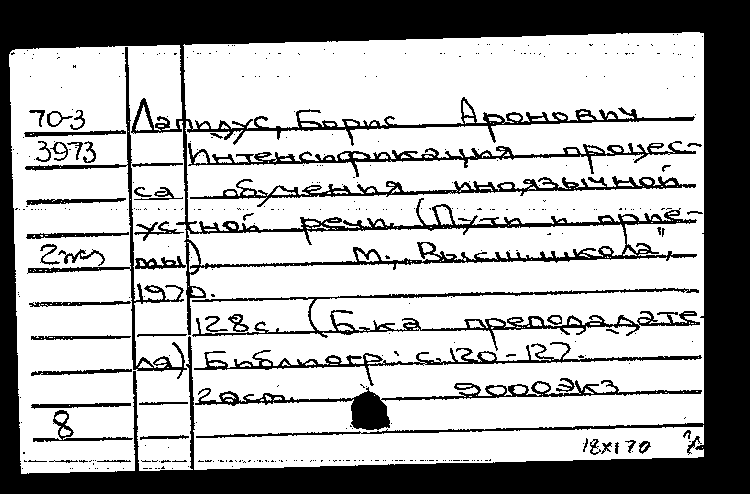 70-3 Лапидус, Борис Аронович
3973 Интенсификация процес-
са обучения иноязычной
устной речи. (Пути и прие-
2экз мы). М., "Высш. школа",
1970.
128с. (Б-ка преподавате-
ля). Библиогр.: с.120-127.
9000экз
8
18X170